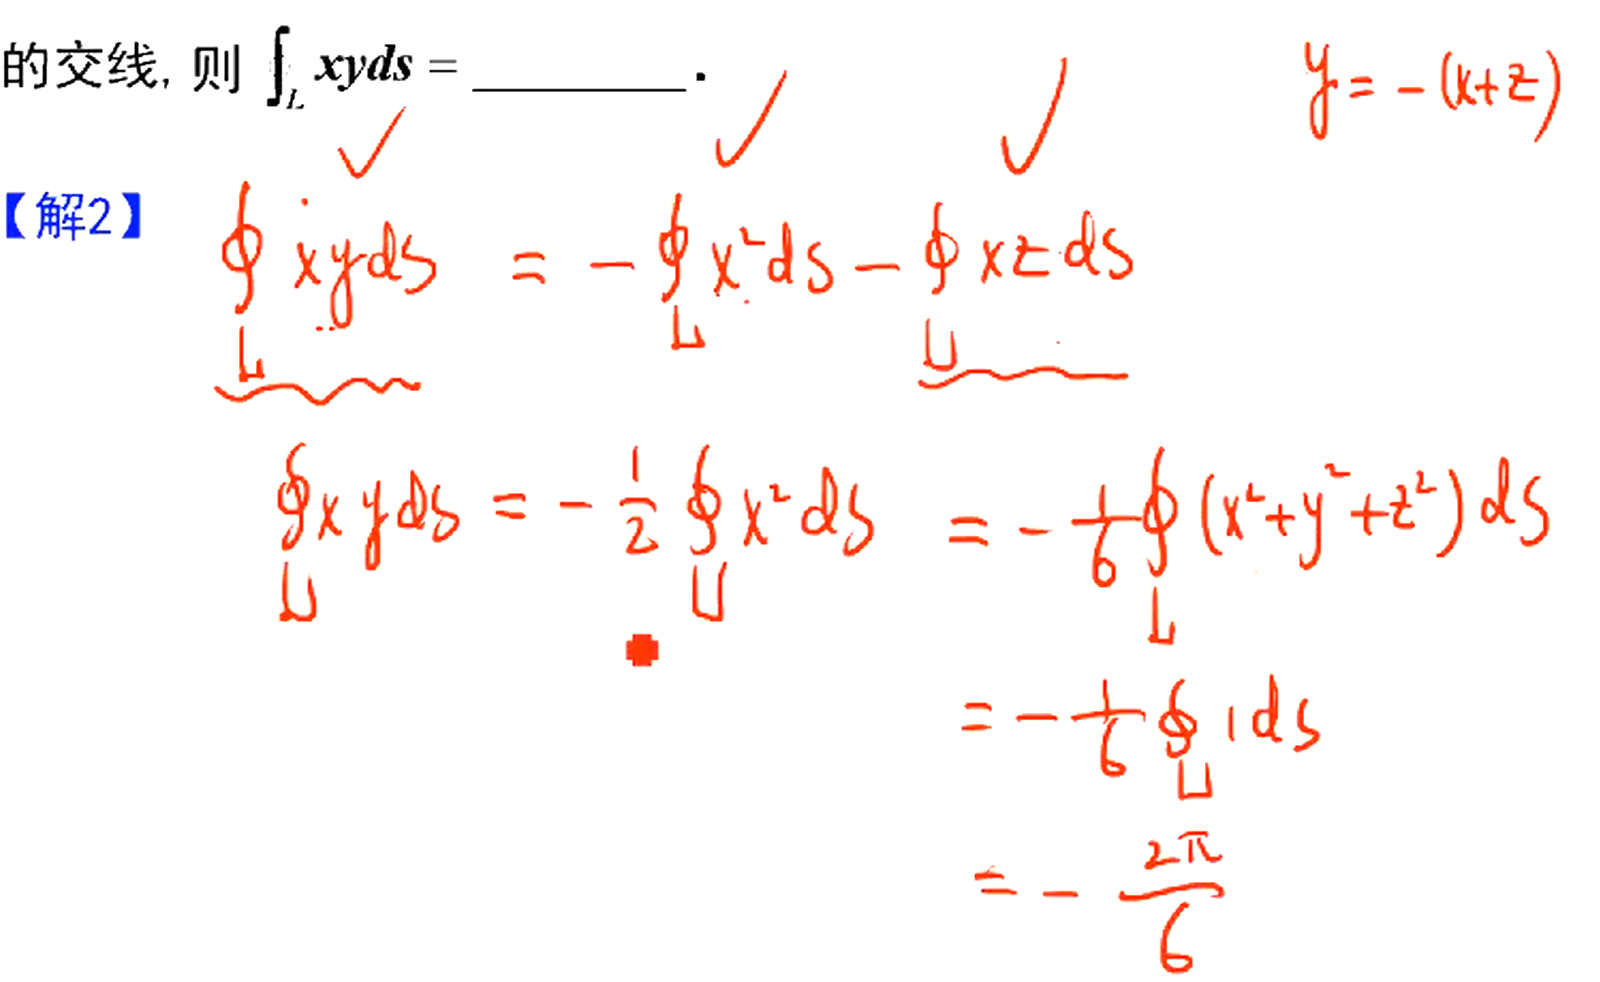 的交线, 则 ∫_L xyds = ________ .
y = -(x+z)
【解2】 ∮_L xyds = -∮_L x²ds - ∮_L xzds
∮_L xyds = -1/2 ∮_L x²ds = -1/6 ∮_L (x²+y²+z²)ds
= -1/6 ∮_L 1ds
= - 2π/6